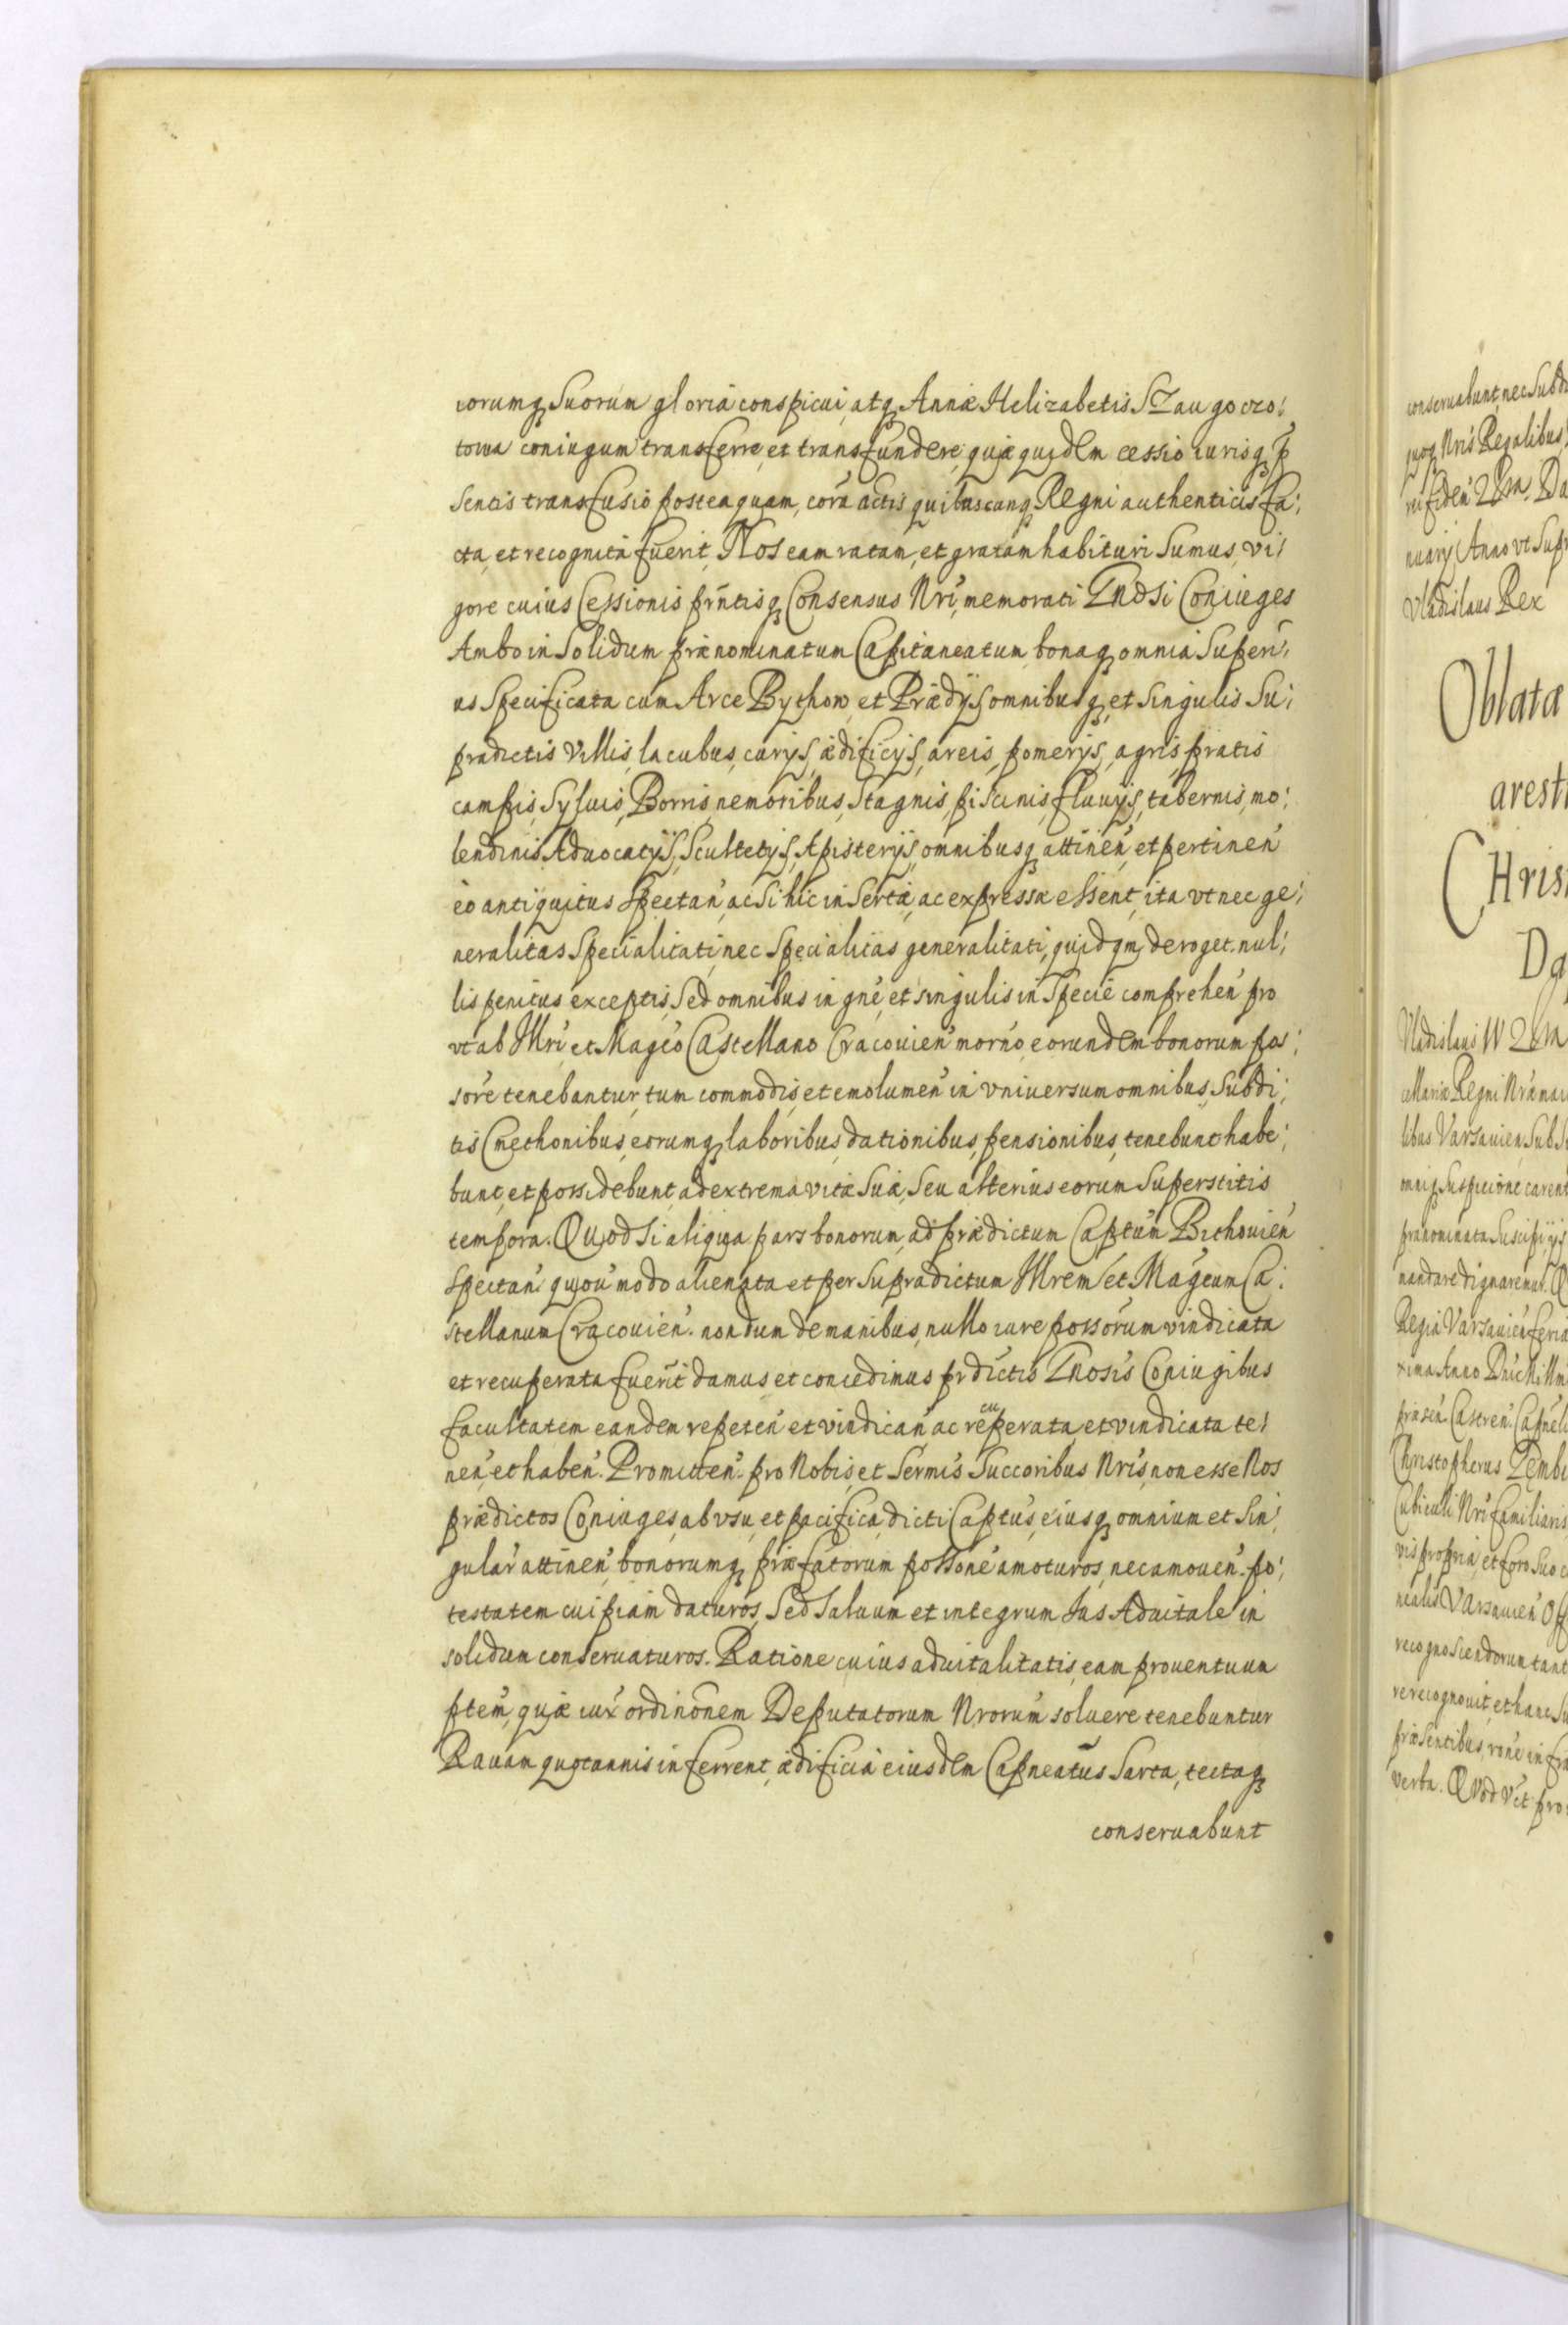 iorumq Suorum gloria conspicui, atq Annæ Helizabetis Szaugoczo:
towa coniugum transferre, et transfundere, quæ quidem cessio iurisq p
sentis transfusio posteaquam, corã actis quibuscunq Regni authenticis fa:
cta, et recognita fuerit, Nos eam ratam, et gratam habituri Sumus, vi:
gore cuius Cessionis prntisq Consensus Nri, memorati Gnosi Coniuges
Ambo in Solidum prænominatum Capitaneatum bonaq omnia Superi:
us Specificata cum Arce Bythow, et Prædijs omnibusq, et Singulis Su:
pradictis Villis, lacubus, curijs, ædificijs, areis, pomerijs, agris, pratis
campis, Syluis, Borris, nemoribus, Stagnis, piscinis, fluuijs, tabernis, mo:
lendinis Aduocatijs, Scultetijs, Apisterijs, omnibusq attinen, et pertinen
eo antiquitus Spectan, ac Si hic inserta, ac expressa essent, ita vt nec ge:
neralitas Specialitati, nec Specialitas generalitati, quidqm deroget. nul:
lis penitus exceptis, Sed omnibus in gne, et singulis in Specie comprehen pro
vt ab Illri et Magco Castellano Cracouien morno, eorundem bonorum pos:
sore tenebantur, tum commodis, et emolumen in vniuersum omnibus, Subdi:
tis Cmethonibus, eorumq laboribus, dationibus, pensionibus, tenebunt habe:
bunt, et possidebunt, ad extrema vitæ Suæ, Seu alterius eorum Superstitis
tempora. Quod Si aliqua pars bonorum, ad prædictum Captum Bithouien
Spectan quouu modo alienata et per Supradictum Illrem et Magcum Ca:
stellanum Cracouien. nondum de manibus, nullo iure possorum vindicata
et recuperata fuerit damus et concedimus prdictis Gnosis Coniugibus
facultatem eandem repeten et vindican ac recuperata, et vindicata te:
nen, et haben. Promitten. pro Nobis, et Sermis Succoribus Nris, non esse Nos
prædictos Coniuges, ab vsu, et pacifica, dicti Captus, eiusq omnium et Sin:
gular attinen bonorumq præfatorum possone amoturos, nec amouen. po:
testatem cuipiam daturos, Sed Saluum et integrum Jus Aduitale in
solidum conseruaturos. Ratione cuius aduitalitatis, eam prouentuum
ptem, quæ iux ordinonem Deputatorum Nrorum soluere tenebuntur
Rauam quotannis inferrent, ædificia eiusdem Capneatus Sarta, tectaq
conseruabunt
conseruabunt, nec Subd
quoq Nris Regalibus
rei fidem
nuarij Anno vt Supr
Vladislaus Rex
Oblata
arest
CHris
Vladislaus IV
Regni Nra
Varsauien Sub
omniq Suspicione carent
prænominata Suscipi
mandare dignaremur.
Regia Varsauien feria
xima Anno
præsen Castren.
Christopherus
Cubiculi Nri familiaris
vis propria, et foro Suo
nealis Varsauien
recognoscendorum tant
re recognouit, et hanc
præsentibus, rone
verba. Quod